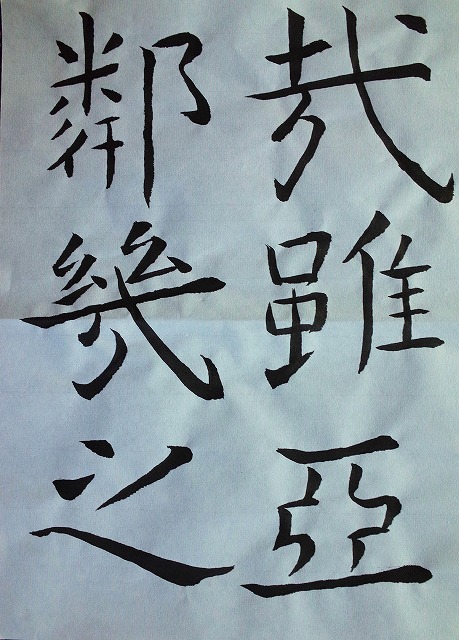 哉雖亞
鄰幾之